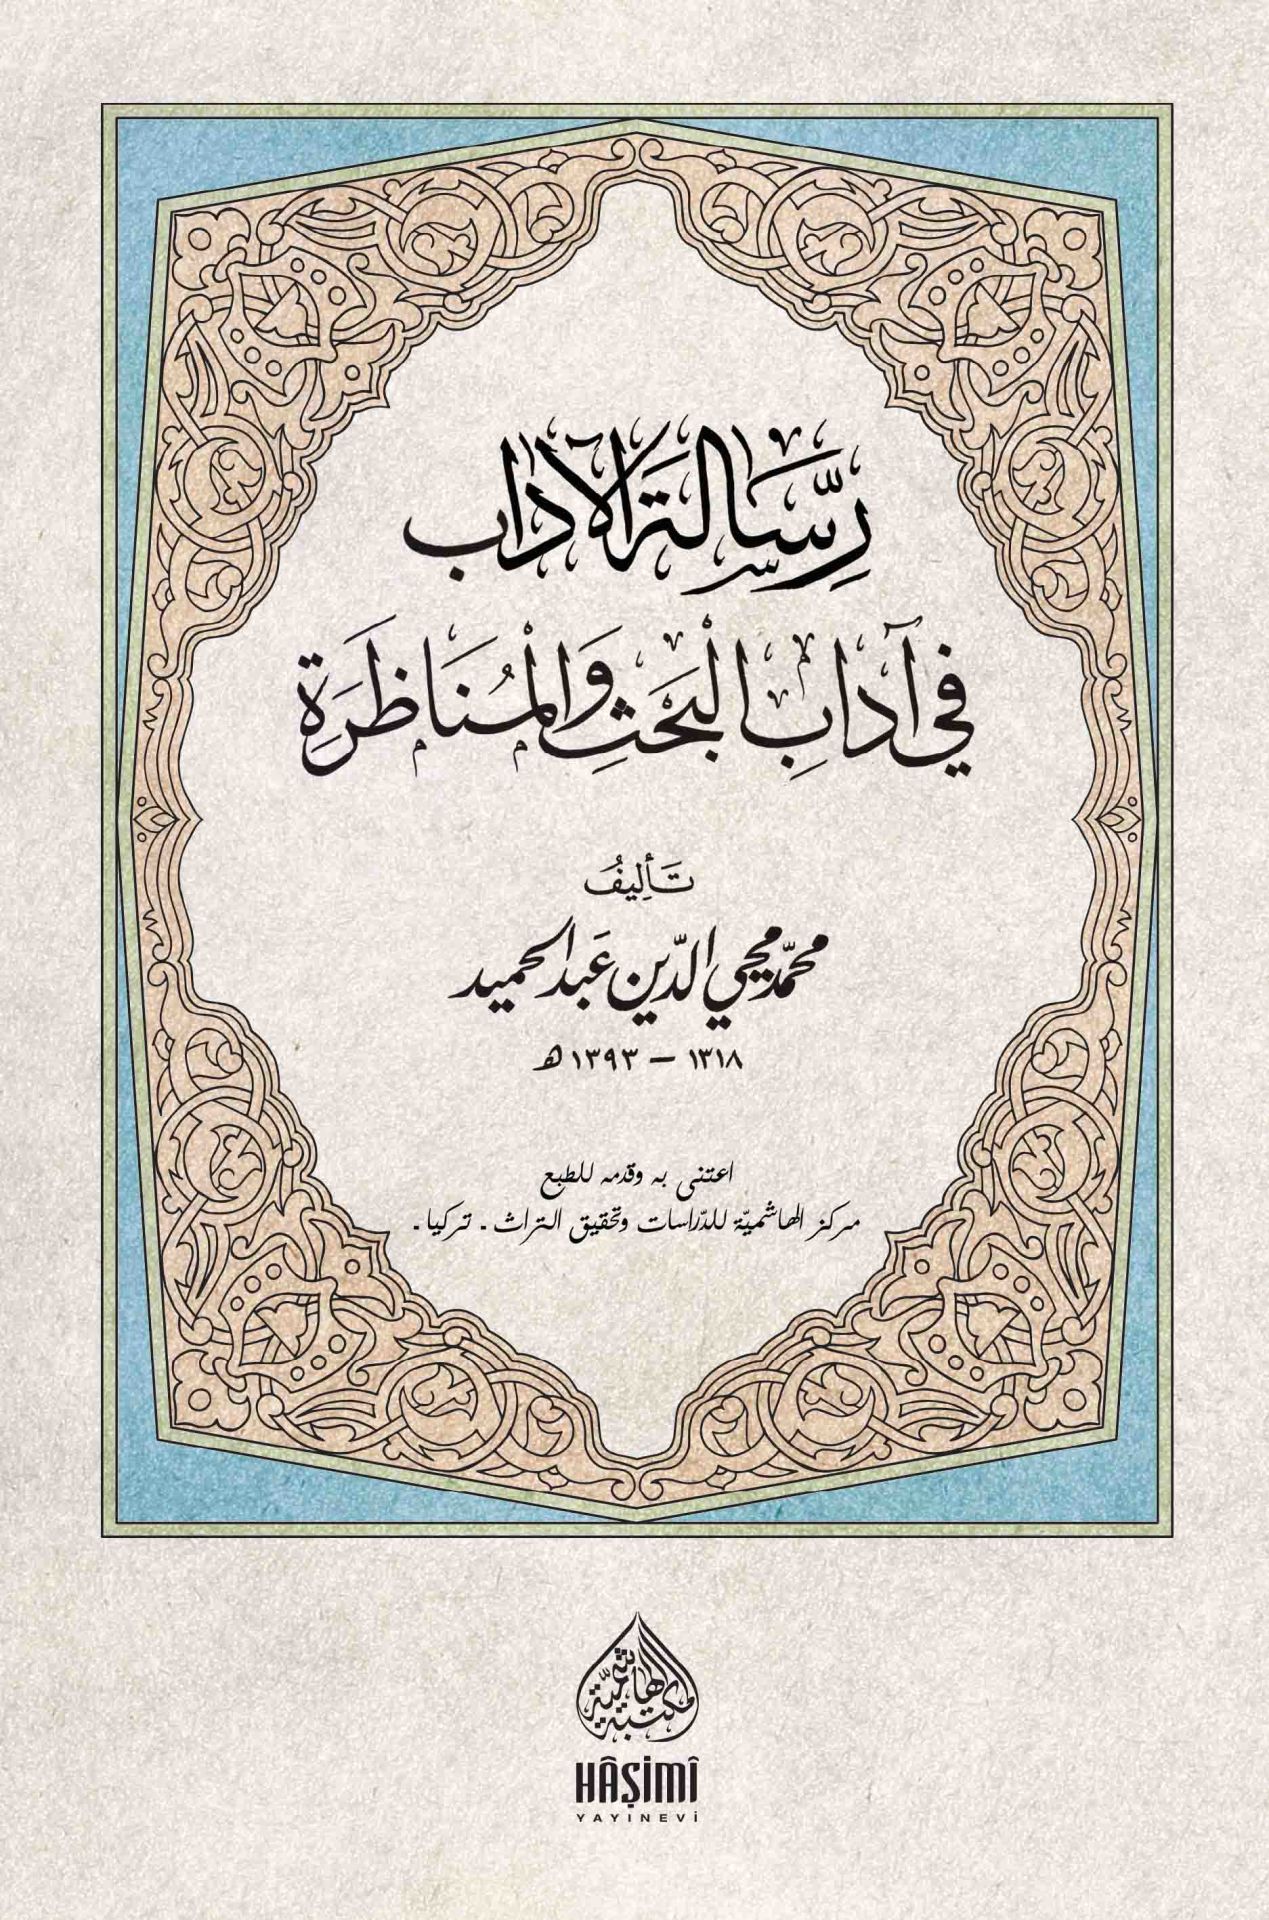 رِسَالَةُ الآدَابِ
فِي آدَابِ الْبَحْثِ وَالْمُنَاظَرَةِ
تَأْلِيفُ
محمّد محيي الدّين عَبد الحميد
١٣١٨ – ١٣٩٣ هـ
اعتنى به وقدمه للطبع
مركز الهاشميّة للدّراسات وتحقيق التراث - تركيا -
مكتبة الهاشميّة
HÂŞİMÎ
YAYINEVİ